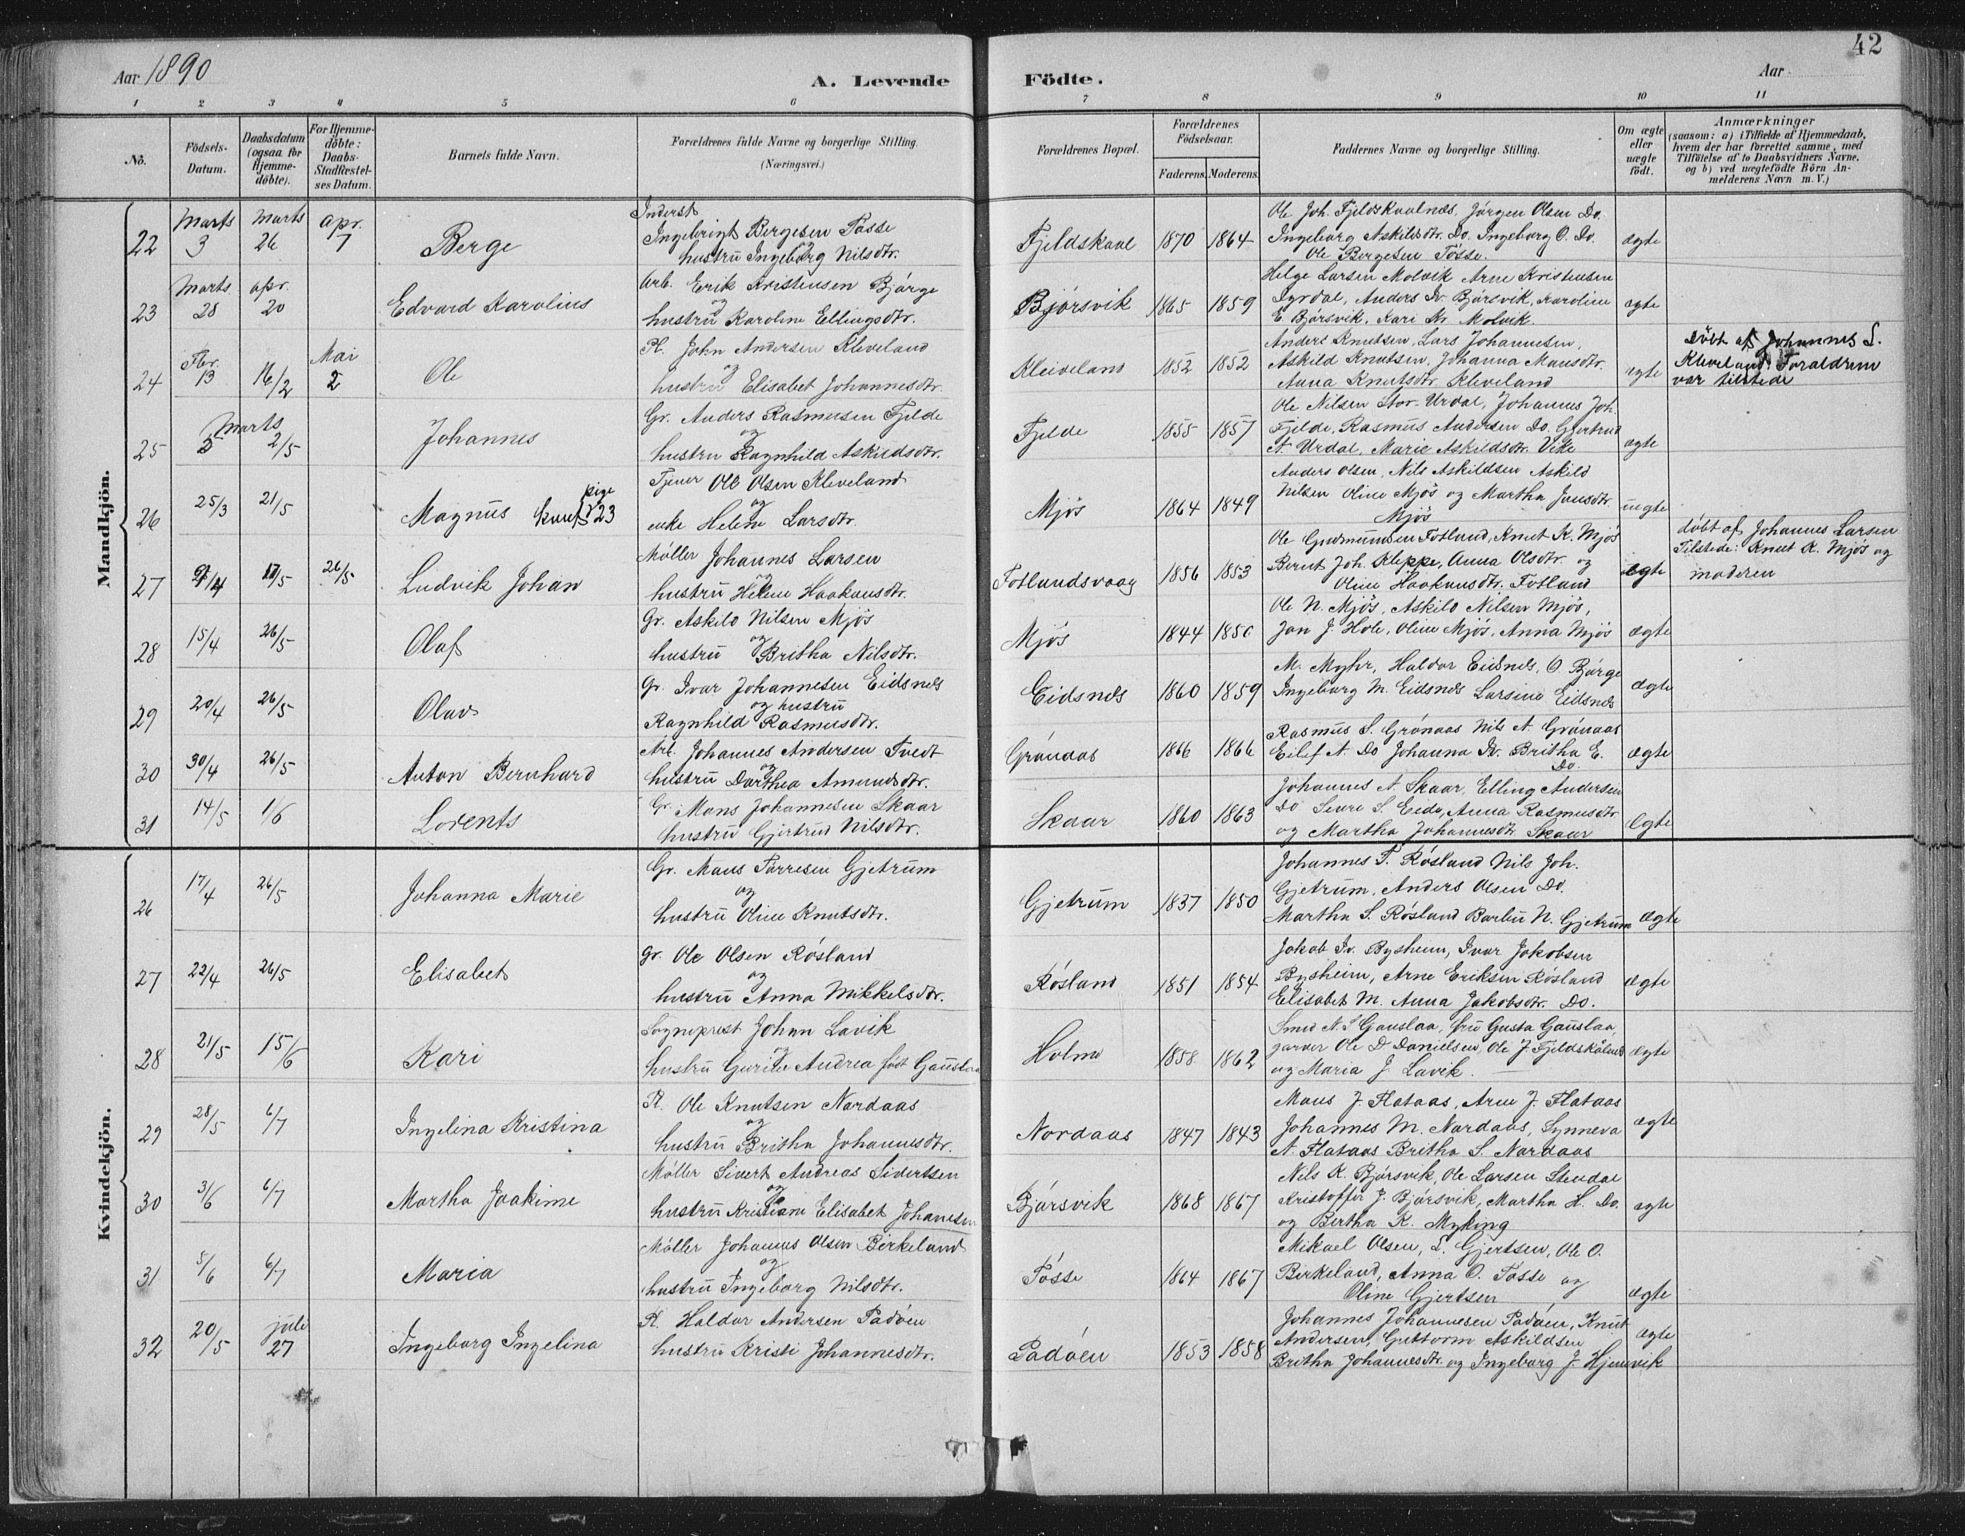 Aar 1890
A. Levende
Födte.
Aar
42
1 2 3 4 5 6 7 8 9 10 11
No.
Födsels-Datum.
Daabsdatum (ogsaa for Hjemme-döbte).
For Hjemme-döbte: Daabs-Stadfæstel-ses Datum.
Barnets fulde Navn.
Forældrenes fulde Navne og borgerlige Stilling. (Næringsvei.)
Forældrenes Bopæl.
Forældrenes Födselsaar.
Faderens. Moderens.
Faddernes Navne og borgerlige Stilling.
Om ægte eller uægte födt.
Anmærkninger
(saasom: a) i Tilfælde af Hjemmedaab, hvem der har forrettet samme, med Tilföielse af to Daabsvidners Navne, og b) ved uægtefödte Börn An-melderens Navn m.V.)
Mandkjön.
22 Marts 3 Marts 26 apr. 7 Berge
Inderst
Ingebrigt Bergesen Tösse
og
hustru Ingeborg Nilsdtr.
Fjeldskaal 1870 1864
Ole Joh. Fjeldskaalnæs, Jørgen Olsen Do.
Ingeborg Askildsdtr. Do. Ingeborg O. Do.
Ole Bergesen Tösse.
ægte
23 Marts 28 apr. 20 Edvard Karolius
Arb. Erik Kristensen Bjørge
og
hustru Karoline Ellingsdtr.
Bjørsvik 1865 1859
Helge Larsen Molvik Arne Kristensen
Dyrdal, Anders Iv. Bjørsvik, Karoline
E. Bjørsvik, Kari Molvik
ægte
24 Fbr. 13 16/2 Mai 2 Ole
Pl. John Andersen Kleveland
og
hustru Elisabet Johannesdtr.
Kleiveland 1852 1852
Anders Knutsen, Lars Johannesen,
Askild Knutsen, Johanna Mansdtr.
Anna Knutsdtr. Kleveland
ægte
Döbt af Johannes L.
Kleveland. Foraldrene
var tilstede
25 Marts 5 2/5 Johannes
Gr. Anders Rasmusen Fjelde
og
hustru Ragnhild Askildsdtr.
Fjelde 1855 1857
Ole Nilsen Stor-Urdal, Johannes Joh.
Fjelde, Rasmus Andersen Do. Gjertrud
A. Urdal, Marie Askildsdtr. Vike
ægte
26 25/3 21/5 Magnus pige 23
Tjener Ole Olsen Kleveland
og
enke Helene Larsdtr.
Mjøs 1864 1849
Anders Olsen, Nils Askildsen Askild
Nilsen Oline Mjøs og Martha Jansdtr.
Mjøs
uægte
27 11/5 26/5 Ludvik Johan
Møller Johannes Larsen
og
hustru Helene Haakonsdtr.
Fotlandsvaag 1856 1853
Ole Gudmundsen Fotland, Knut K. Mjøs
Bernt Joh. Kleppe, Anna Olsdtr. og
Oline Haakonsdtr. Fotland
ægte
døbt af Johannes Larsen
Tilstede: Knut K. Mjøs og
moderen
28 15/4 26/5 Olaf
Gr. Askild Nilsen Mjøs
og
hustru Britha Nilsdtr.
Mjøs 1844 1850
Ole N. Mjøs, Askild Nilsen Mjøs,
Jan J. Hole, Oline Mjøs, Anna Mjøs
ægte
29 20/4 26/5 Olav
Gr. Ivar Johannesen Eidsnes
og hustru
Ragnhild Rasmusdtr.
Eidsnes 1860 1859
M. Myhr, Haldor Eidsnes, O. Bjørge
Ingeborg M. Eidsnes Larsine Eidsnes
ægte
30 30/4 26/5 Anton Bernhard
Arb. Johannes Andersen Tvedt
og
hustru Dorthea Amundsdtr.
Grønaas 1866 1866
Rasmus S. Grønaas Nils A. Grønaas
Eilef A. Do Johanna Iv. Britha E.
Do.
ægte
31 14/5 1/6 Lorents
Gr. Mons Johannesen Skaar
hustru Gjertrud Nilsdtr.
Skaar 1860 1863
Johannes A. Skaar, Elling Andersen
Do S. Eide, Anna Rasmusdtr
og Martha Johannesdtr Skaar
Ægte
Kvindekjön.
26 17/4 26/5 Johanna Marie
Gr. Mans Torresen Gjetrum
og
hustru Oline Knutsdtr.
Gjetrum 1837 1850
Johannes T. Røsland Nils Joh.
Gjetrum, Anders Olsen Do.
Martha S. Røsland Barbu N. Gjetrum
Ægte
27 22/4 26/5 Elisabet
Gr. Ole Olsen Røsland
og
hustru Anna Mikkelsdtr.
Røsland 1851 1854
Jakob Iv. Bysheim, Ivar Jakobsen
Bysheim, Arne Eriksen Røsland
Elisabet M. Anna Jakobsdtr. Do.
ægte
28 21/5 15/6 Kari
Sogneprest Johan Lavik
og
hustru Andrea født Gauslaa
Holme 1858 1862
Smed N. S Gauslaa, fru Gusta Gauslaa,
garver Ole D Danielsen, Ole J Fjeldskålnes
og Maria J. Lavik.
ægte
29 28/5 6/7 Ingelina Kristina
Pl. Ole Knutsen Nordaas
og
hustru Britha Johannesdtr.
Nordaas 1847 1843
Mons J. Flataas, Arne J. Flataas
Johannes M. Nordaas, Synneva
A. Flataas Britha S. Nordaas
ægte
30 3/6 6/7 Martha Joakime
Møller Sivert Andreas Sivertsen
og
hustru Kristiane Elisabet Johannesen
Bjørsvik 1868 1867
Nils K. Bjørsvik, Ole Larsen Stendal
Kristoffer J. Bjørsvik, Martha H. Do.
og Bertha K. Myking
ægte
31 5/6 6/7 Maria
Møller Johannes Olsen Birkeland
og
hustru Ingeborg Nilsdtr.
Tøsse 1864 1867
Mikael Olsen, L. Gjertsen, Ole O.
Birkeland, Anna O. Tøsse og
Oline Gjertsen
ægte
32 20/5 juli 27 Ingeborg Ingelina
Pl. Haldor Andersen Padøen
hustru Kristi Johannesdtr.
Padøen 1853 1858
Johannes Johannesen Padøen, Knut
Andersen, Guttorm Askildsen
Britha Johannesdtr. og Ingeborg J. Hjemvik
ægte